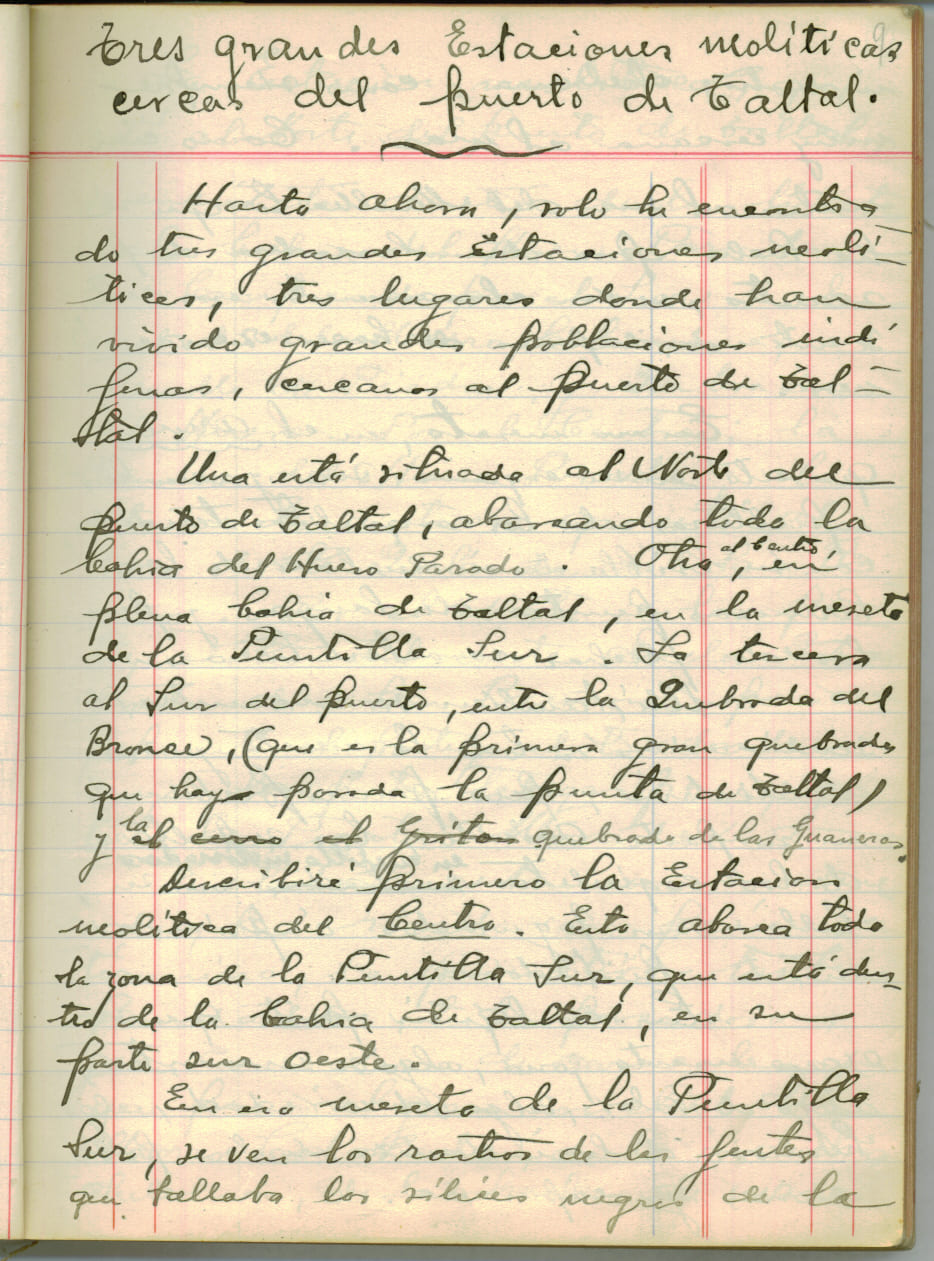 Tres grandes Estaciones neolíticas
cercas del puerto de Taltal.
Hasta ahora, solo he encontra
do tres grandes Estaciones neolí-
ticas, tres lugares donde han
vivido grandes poblaciones indí
genas, cercanos al puerto de Tal-
tal.
Una está situada al Norte del
puerto de Taltal, abarcando toda la
bahia del Hueso Parado. Otra, al Centro, en
plena bahia de Taltal, en la meseta
de la Puntilla Sur. La tercera
al Sur del puerto, entre la Quebrada del
Bronce, (que es la primera gran quebrada
que hay pasada la punta de Taltal)
y la el cerro el Griton quebrada de las Guaneras.
Describiré primero la Estacion
neolítica del Centro. Esta abarca toda
la zona de la Puntilla Sur, que está den-
tro de la bahia de Taltal, en su
parte sur oeste.
En esa meseta de la Puntilla
Sur, se ven los rastros de las gentes
que tallaba los sílices negros de la